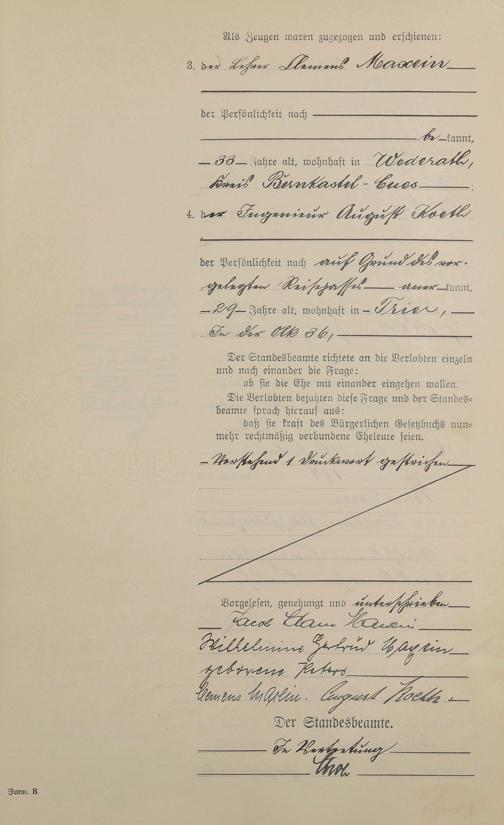 Als Zeugen waren zugezogen und erschienen:
3. der Lehrer Clemens Maxein
der Persönlichkeit nach
be kannt,
33 Jahre alt, wohnhaft in Wederath,
Kreis Bernkastel-Cues;
4. der Ingenieur August Koeth
der Persönlichkeit nach auf Grund des vor-
gelegten Reisepasses aner kannt,
29 Jahre alt, wohnhaft in Trier,
In der Olk 36,
Der Standesbeamte richtete an die Verlobten einzeln
und nach einander die Frage:
ob sie die Ehe mit einander eingehen wollen.
Die Verlobten bejahten diese Frage und der Standes-
beamte sprach hierauf aus:
daß sie kraft des Bürgerlichen Gesetzbuchs nun-
mehr rechtmäßig verbundene Eheleute seien.
Vorstehend 1 Druckwort gestrichen
Vorgelesen, genehmigt und unterschrieben
Jacob Maxein
Wilhelmine Gertrud Maxein
geborene Peters
Clemens Maxein. August Koeth.
Der Standesbeamte.
In Vertretung
Form. B.